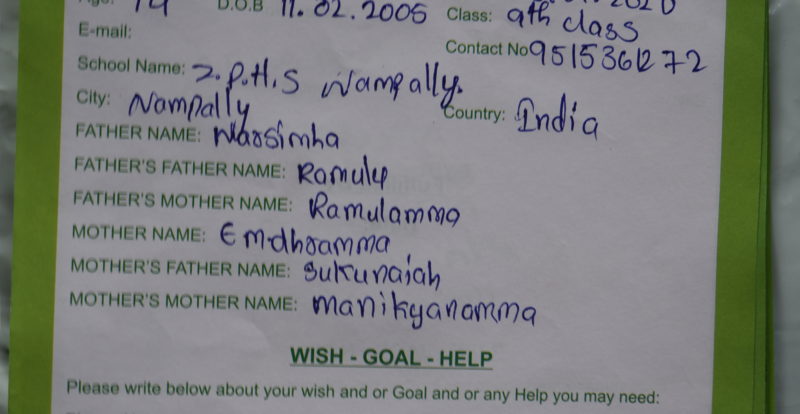 Age: 14 D.O.B 11.02.2005 Class: 9th class
E-mail: Contact No 9515361272
School Name: Z.P.H.S Nampally.
City: Nampally Country: India
FATHER NAME: Narsimha
FATHER'S FATHER NAME: Ramulu
FATHER'S MOTHER NAME: Ramulamma
MOTHER NAME:
MOTHER'S FATHER NAME: Sukunaiah
MOTHER'S MOTHER NAME: manikyanamma
WISH - GOAL - HELP
Please write below about your wish and or Goal and or any Help you may need: